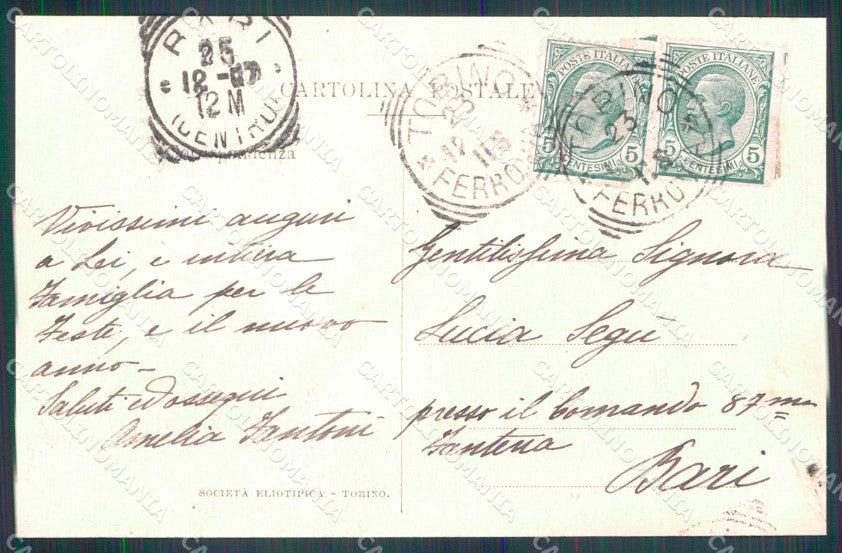 BARI
25
12-07
12 M
(CENTRO)
CARTOLINA POSTALE
TORINO
23
12
FERROVIA
POSTE ITALIANE
5 CENTESIMI 5
TORINO
23
FERROVIA
POSTE ITALIANE
5 CENTESIMI 5
Vivissimi auguri
a Lei, e intiera
Famiglia per le
Feste, e il nuovo
anno-
Saluti ed ossequi
Amelia Fantoni
Gentilissima Signora
Lucia Segù
presso il Comando 87mo
Fanteria
Bari
SOCIETÀ ELIOTIPICA - TORINO.
CARTOLINOMANIA